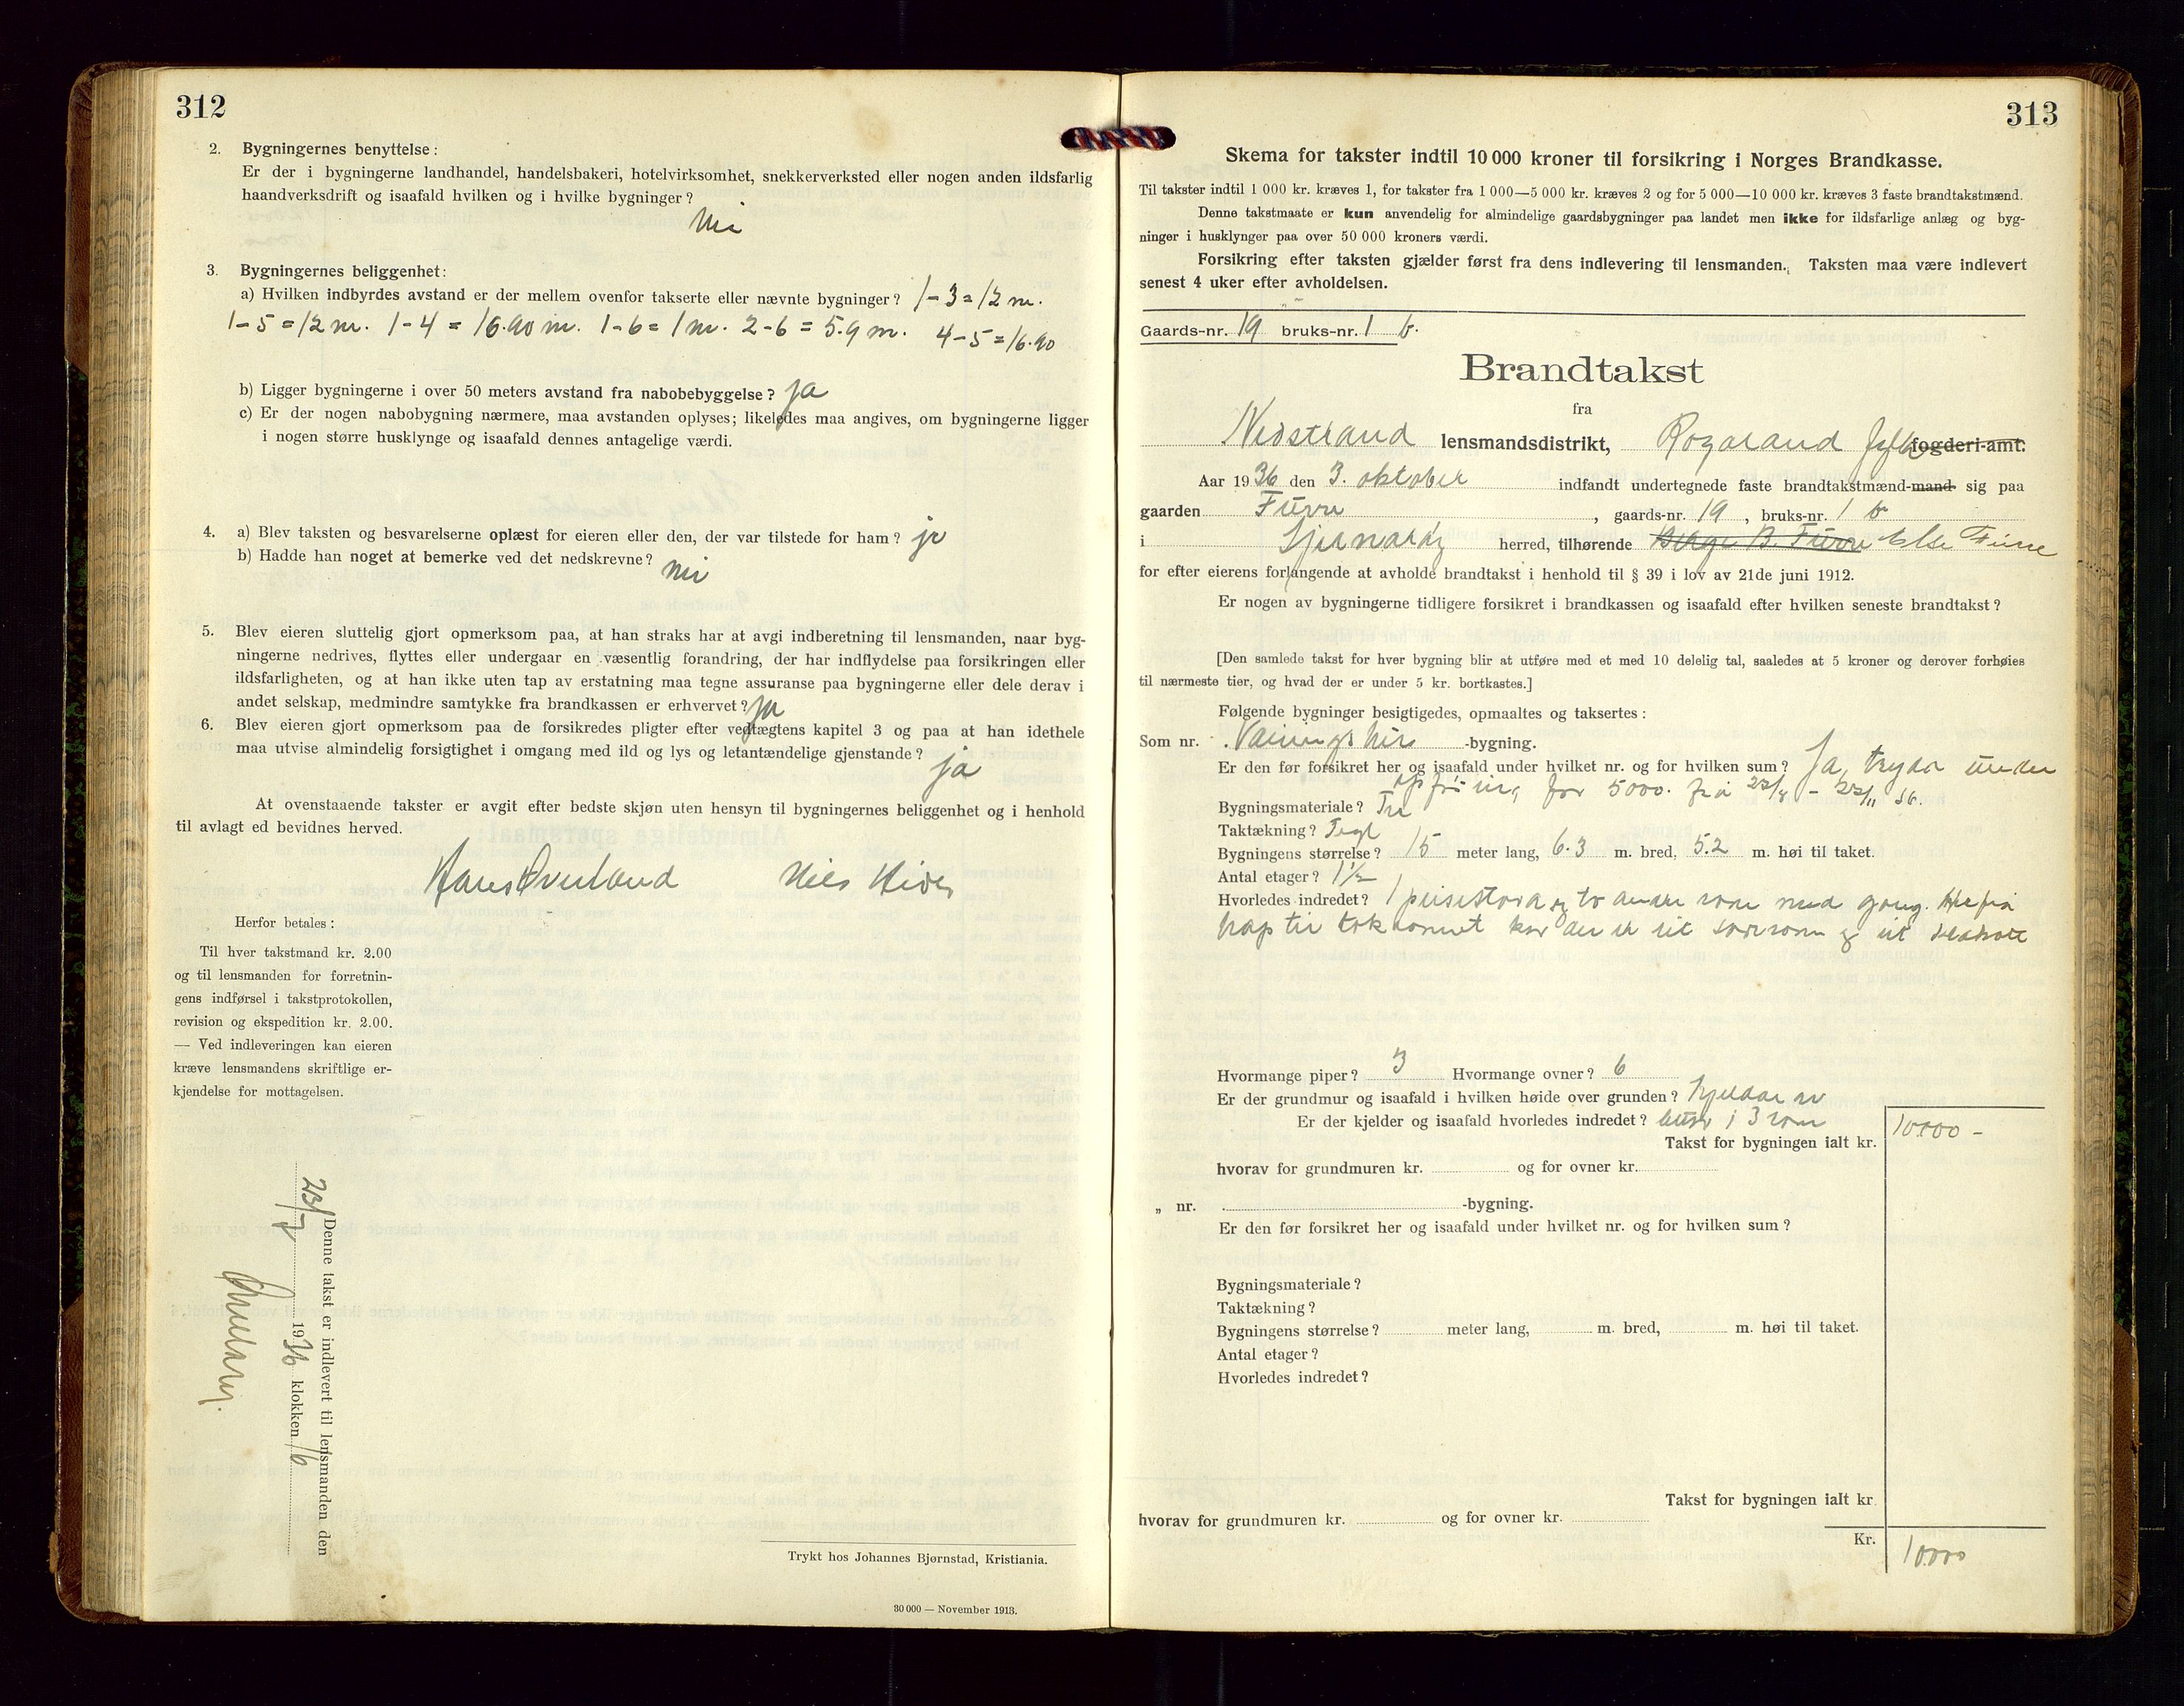 312
2. Bygningernes benyttelse:
Er der i bygningerne landhandel, handelsbakeri, hotelvirksomhet, snekkerverksted eller nogen anden ildsfarlig
haandverksdrift og isaafald hvilken og i hvilke bygninger?
Nei
3. Bygningernes beliggenhet:
a) Hvilken indbyrdes avstand er der mellem ovenfor takserte eller nævnte bygninger? 1-3=12 m.
1-5=12 m. 1-4=16.90 m. 1-6=1 m. 2-6=5.9 m. 4-5=16.90
b) Ligger bygningerne i over 50 meters avstand fra nabobebyggelse? ja
c) Er der nogen nabobygning nærmere, maa avstanden oplyses; likeledes maa angives, om bygningerne ligger
i nogen større husklynge og isaafald dennes antagelige værdi.
4. a) Blev taksten og besvarelserne oplæst for eieren eller den, der var tilstede for ham? ja
b) Hadde han noget at bemerke ved det nedskrevne? nei
5. Blev eieren sluttelig gjort opmerksom paa, at han straks har at avgi indberetning til lensmanden, naar byg-
ningerne nedrives, flyttes eller undergaar en væsentlig forandring, der har indflydelse paa forsikringen eller
ildsfarligheten, og at han ikke uten tap av erstatning maa tegne assuranse paa bygningerne eller dele derav i
andet selskap, medmindre samtykke fra brandkassen er erhvervet? ja
6. Blev eieren gjort opmerksom paa de forsikredes pligter efter vedtægtens kapitel 3 og paa at han idethele
maa utvise almindelig forsigtighet i omgang med ild og lys og letantændelige gjenstande? ja
At ovenstaaende takster er avgit efter bedste skjøn uten hensyn til bygningernes beliggenhet og i henhold
til avlagt ed bevidnes herved.
Hans Øverland
Herfor betales:
Til hver takstmand kr. 2.00
og til lensmanden for forretnin-
gens indførsel i takstprotokollen,
revision og ekspedition kr. 2.00.
— Ved indleveringen kan eieren
kræve lensmandens skriftlige er-
kjendelse for mottagelsen.
Denne takst er indlevert til lensmanden den
23/7 1936 klokken 16
Trykt hos Johannes Bjørnstad, Kristiania.
30 000 — November 1913.
313
Skema for takster indtil 10 000 kroner til forsikring i Norges Brandkasse.
Til takster indtil 1 000 kr. kræves 1, for takster fra 1 000—5 000 kr. kræves 2 og for 5 000—10 000 kr. kræves 3 faste brandtakstmænd.
Denne takstmaate er kun anvendelig for almindelige gaardsbygninger paa landet men ikke for ildsfarlige anlæg og byg-
ninger i husklynger paa over 50 000 kroners værdi.
Forsikring efter taksten gjælder først fra dens indlevering til lensmanden. Taksten maa være indlevert
senest 4 uker efter avholdelsen.
Gaards-nr. 19 bruks-nr. 1 b.
Brandtakst
fra
Nedstrand lensmandsdistrikt, Rogaland fylke fogderi-amt.
Aar 1936 den 3. oktober indfandt undertegnede faste brandtakstmænd-mand sig paa
gaarden Furre , gaards-nr. 19 , bruks-nr. 1 b
i Sjernarøy herred, tilhørende B. Furre Else Furre
for efter eierens forlangende at avholde brandtakst i henhold til § 39 i lov av 21de juni 1912.
Er nogen av bygningerne tidligere forsikret i brandkassen og isaafald efter hvilken seneste brandtakst?
[Den samlede takst for hver bygning blir at utføre med et med 10 delelig tal, saaledes at 5 kroner og derover forhøies
til nærmeste tier, og hvad der er under 5 kr. bortkastes.]
Følgende bygninger besigtigedes, opmaaltes og taksertes:
Som nr. Vaaningshus -bygning.
Er den før forsikret her og isaafald under hvilket nr. og for hvilken sum? Ja, under
for 5000. frå 22/8 - 22/11 36.
Bygningsmateriale? Tre
Taktækning? Tegl
Bygningens størrelse? 15 meter lang, 6.3 m. bred, 5.2 m. høi til taket.
Antal etager? 1½
Hvorledes indredet? 1 peisestova og to andre rom med gang. Herfrå
trap til
Hvormange piper? 3 Hvormange ovner? 6
Er der grundmur og isaafald i hvilken høide over grunden? kjeldar av
Er der kjelder og isaafald hvorledes indredet? i 3 rom
Takst for bygningen ialt kr. 10000 -
hvorav for grundmuren kr. og for ovner kr.
„ nr. -bygning.
Er den før forsikret her og isaafald under hvilket nr. og for hvilken sum?
Bygningsmateriale?
Taktækning?
Bygningens størrelse? meter lang, m. bred, m. høi til taket.
Antal etager?
Hvorledes indredet?
Takst for bygningen ialt kr.
hvorav for grundmuren kr. og for ovner kr.
Kr. 10000